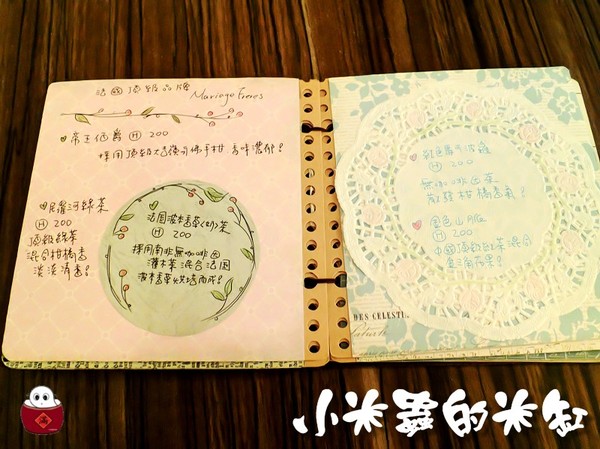 法國頂級品牌 Mariage Freres
帝王伯爵 Ⓗ 200
採用頂級大吉嶺與佛手柑 香味濃郁!
尼羅河綠茶
Ⓗ 200
頂級綠茶
混合柑橘香
淡淡清香!
法國波本香草(奶)茶
Ⓗ 200
採用南非無咖啡因
灌木茶混合法國
波本香草烘培而成!
Ⓗ 200
無咖啡因茶
柑橘香氣!
金色山脈
Ⓗ 200
中國頂級紅茶混合
DES CELESTI
小米蟲的米缸